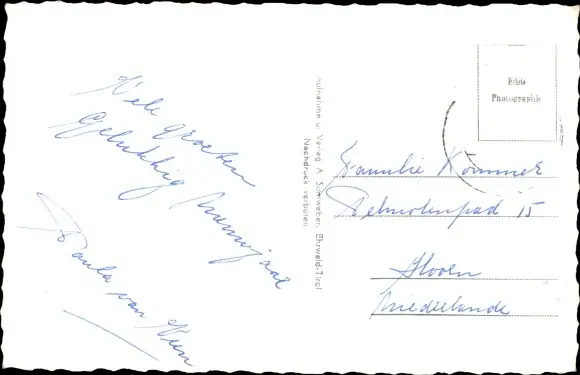 Vele groeten
Gelukkig nieuwjaar
Paula van
Aufnahme u. Verlag A. Somweber, Ehrwald-Tirol
Nachdruck verboten
Echte
Photographie
Familie Kommer
15
Hoorn
Niederlande